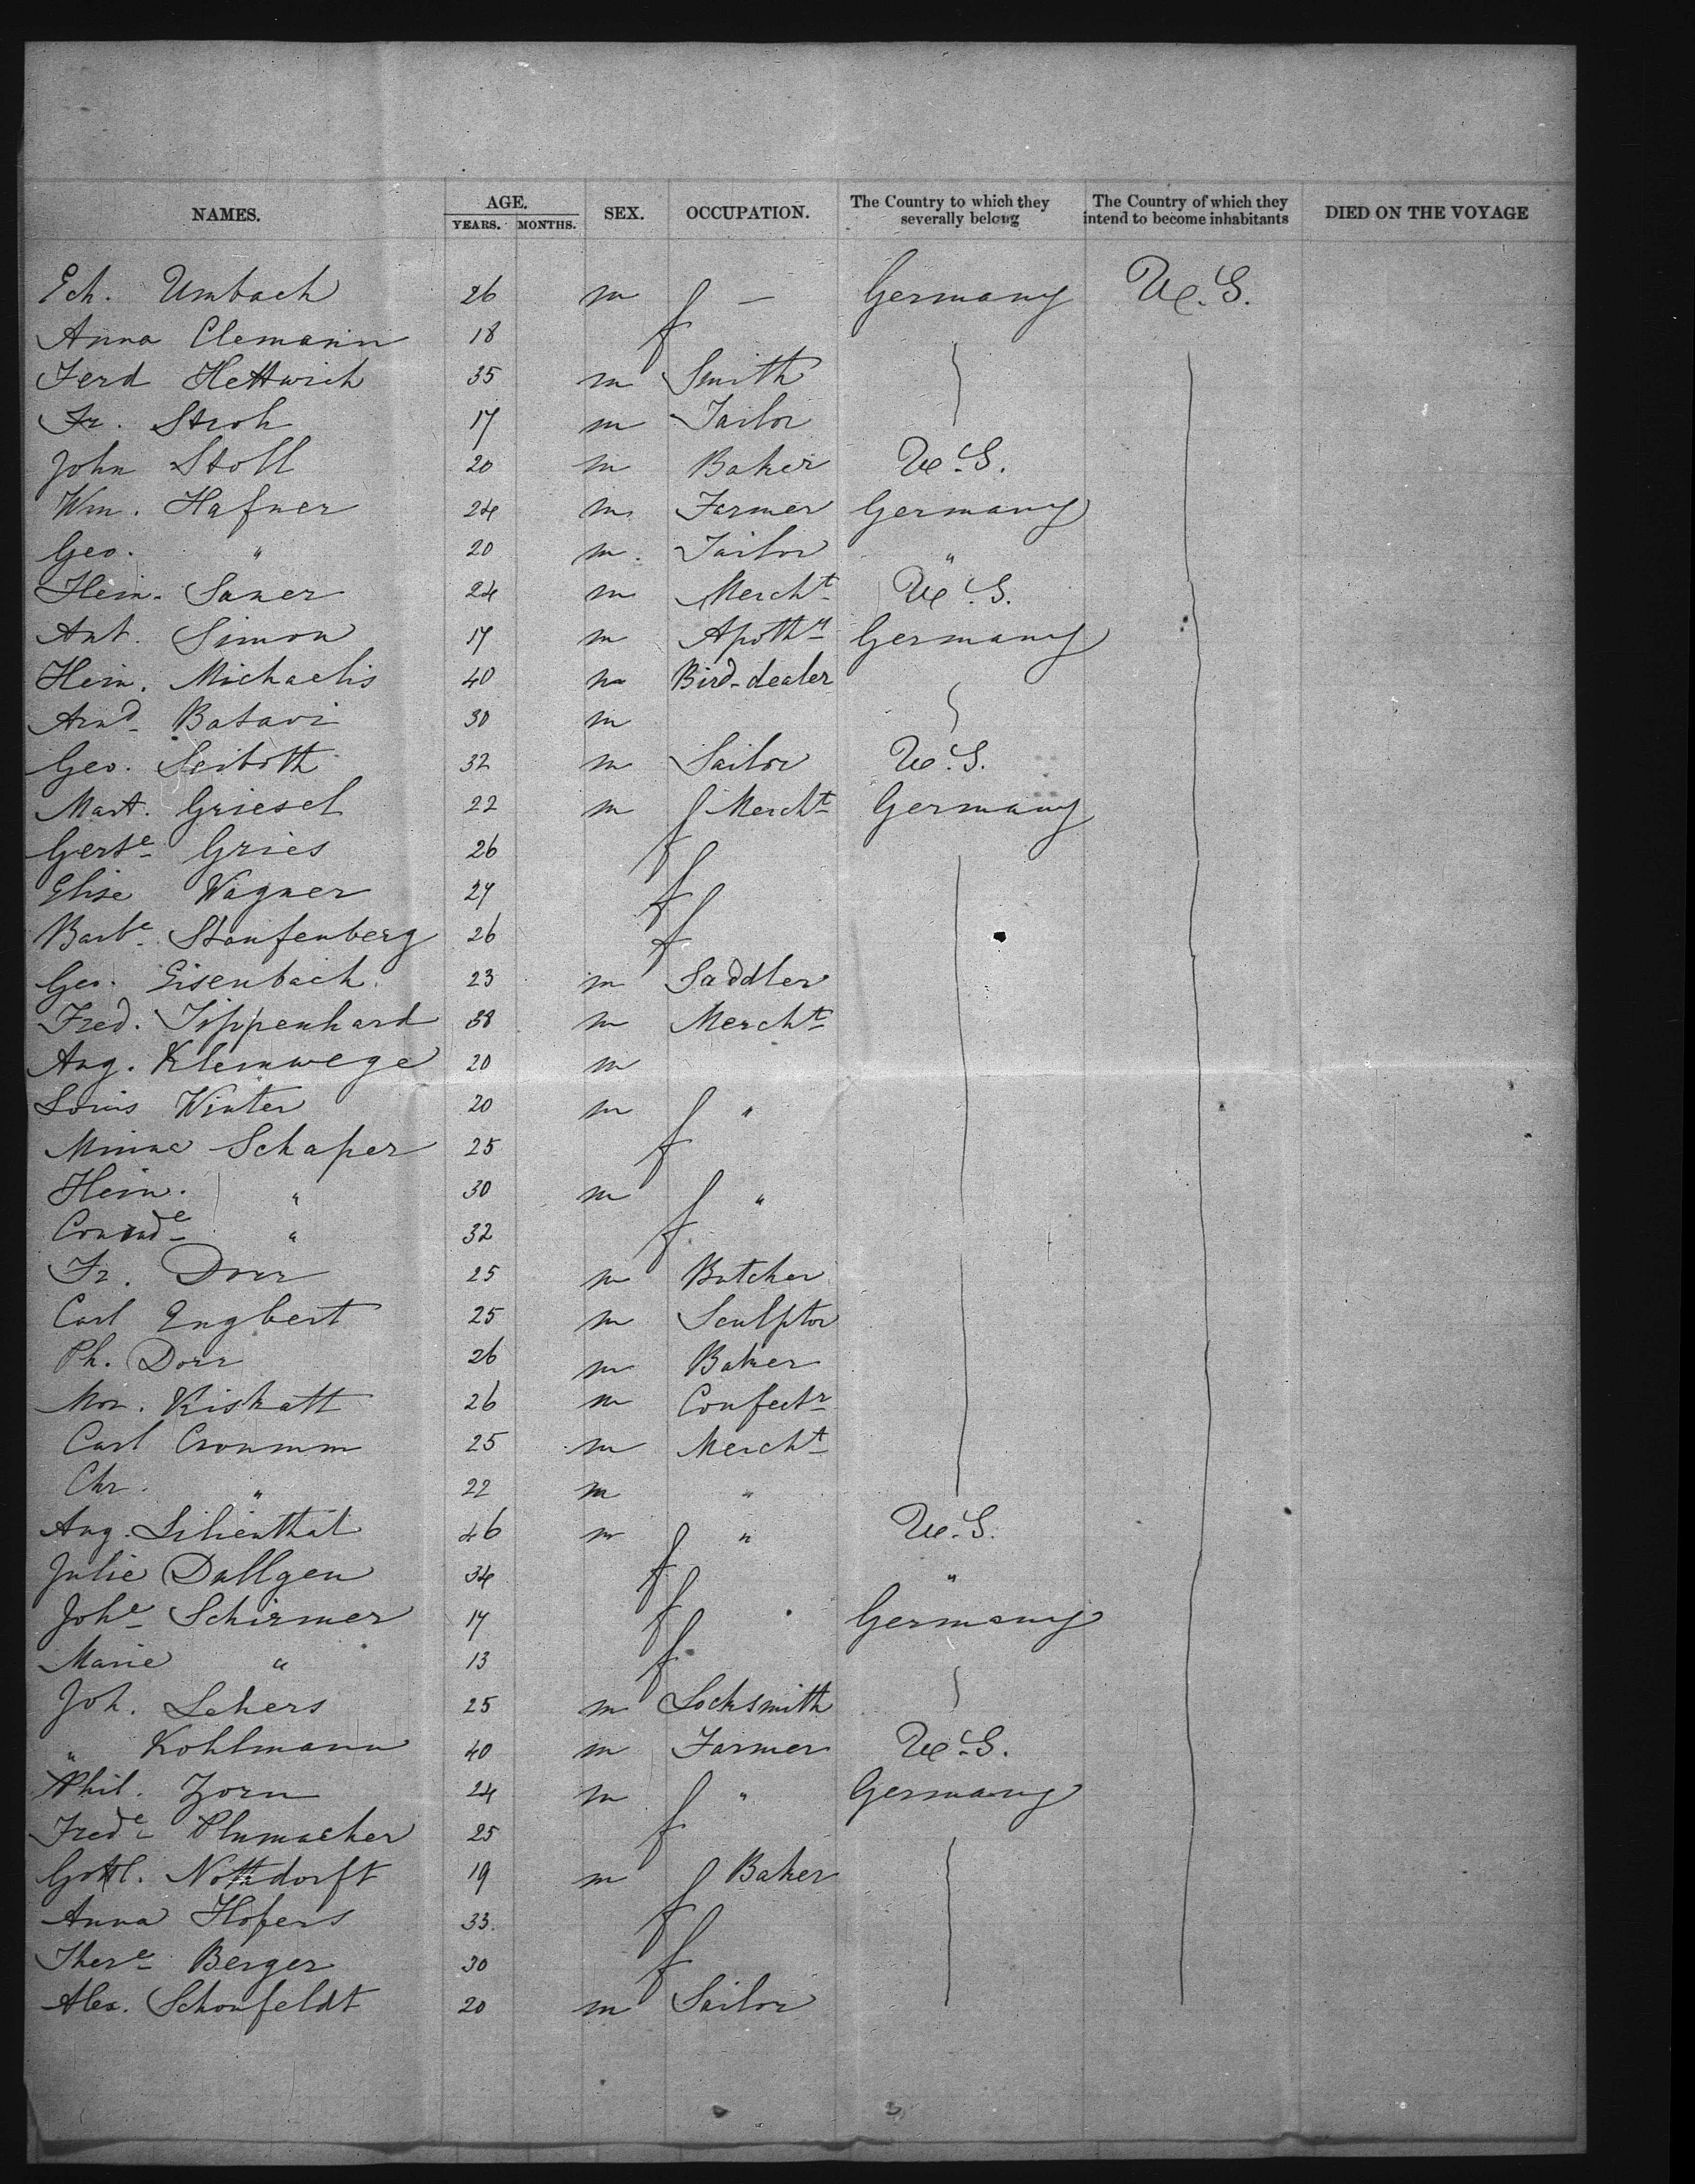 NAMES. AGE. YEARS. MONTHS. SEX. OCCUPATION. The Country to which they severally belong The Country of which they intend to become inhabitants DIED ON THE VOYAGE
Ech. Umbach 26 m — Germany U.S.
Anna Clemann 18 f
Ferd Hettwich 35 m Smith
Fr. Stroh 17 m Tailor
John Stoll 20 m Baker U.S.
Wm. Hafner 24 m Farmer Germany
Geo. " 20 m Tailor "
Hein. Saner 24 m Mercht U.S.
Ant. Simon 17 m Apothy Germany
Hein. Michaelis 40 m Bird-dealer
Arnd Batavi 30 m
Geo. Seiboth 32 m Sailor U.S.
Mart. Griesel 22 m Mercht Germany
Gerte Gries 26 f
Elise Wagner 27 f
Barbe Staufenberg 26 f
Geo. Eisenbach 23 m Saddler
Fred. Tippenhard 38 m Mercht
Aug. Kleinwege 20 m
Louis Winter 20 m "
Minna Schaper 25 f
Hein. " 30 m "
Conrade " 32 f
Fr. Dorr 25 m Butcher
Carl Engbert 25 m Sculptor
Ph. Dorr 26 m Baker
Mor. Kiskatt 26 m Confectr
Carl Cronmm 25 m Mercht
Chr. " 22 m "
Aug. Lilienthal 46 m " U.S.
Julie Dallgen 34 f "
Johe Schirmer 17 f Germany
Marie " 13 f
Joh. Lehers 25 m Locksmith
" Kohlmann 40 m Farmer U.S.
Phil. Zorn 24 m " Germany
Frede Plumacher 25 f
Gottl. Nothdorft 19 m Baker
Anna Hofers 33. f
There Berger 30 f
Alex. Schonfeldt 20 m Sailor